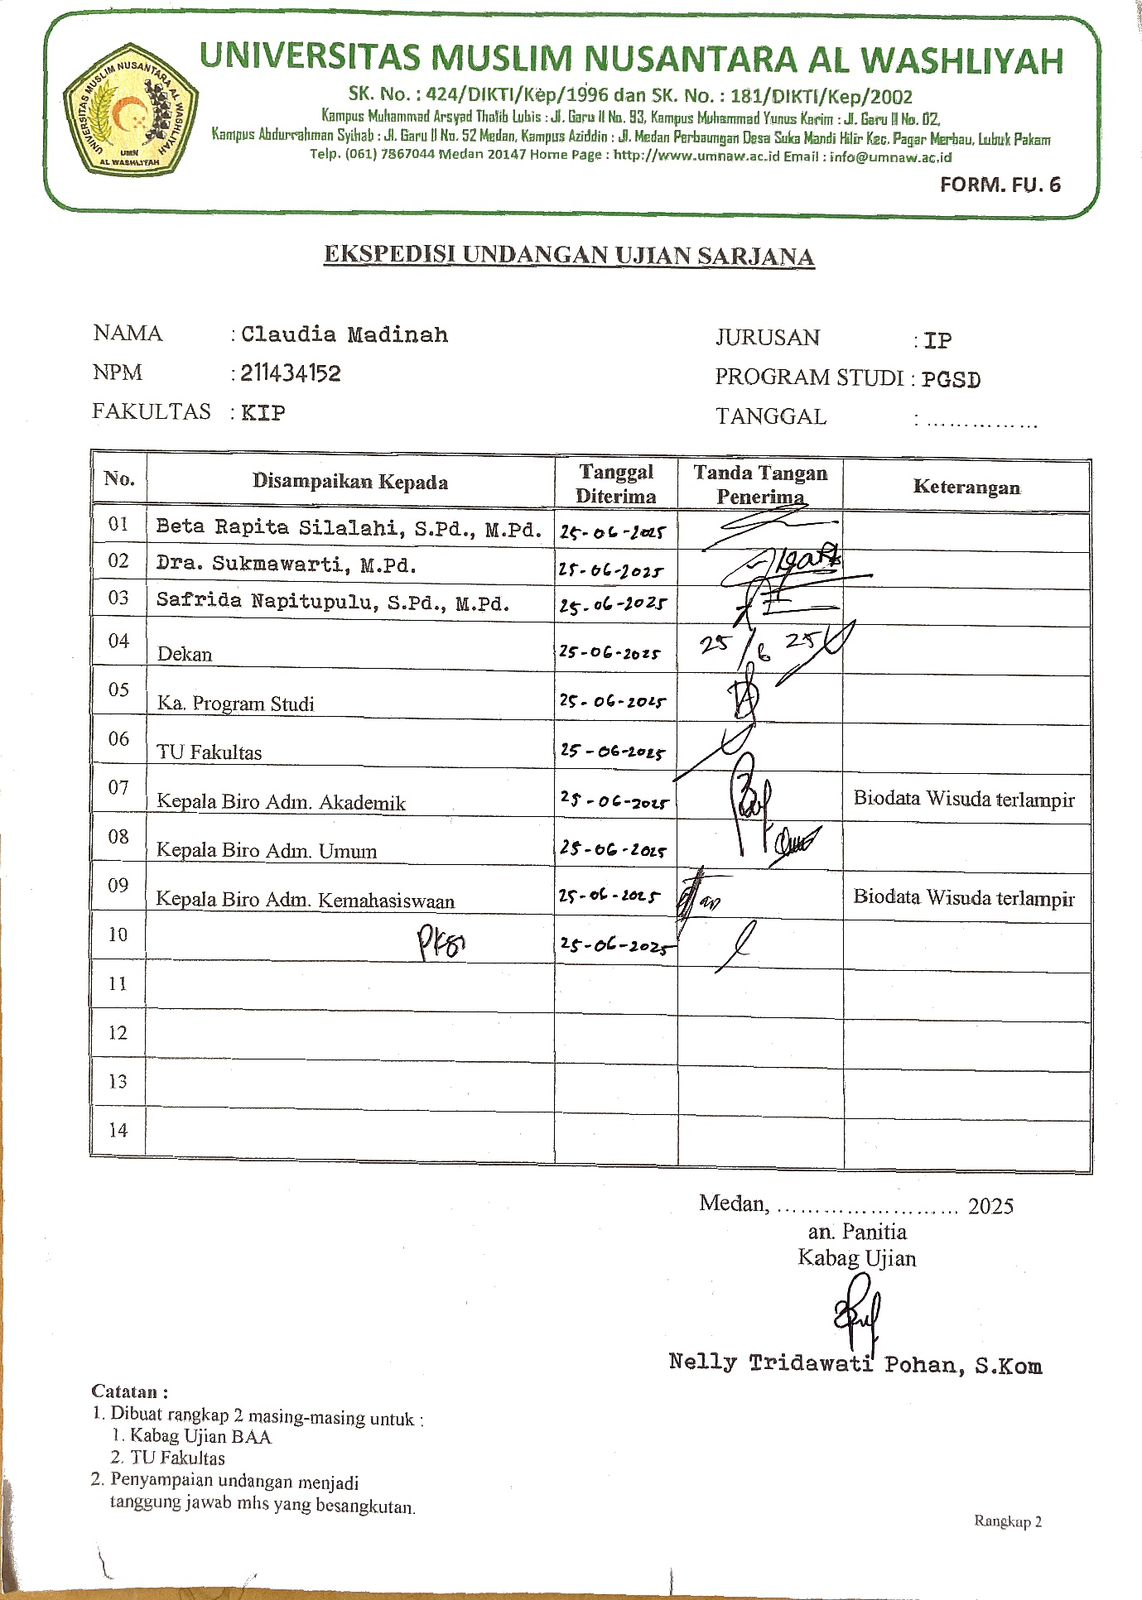 UNIVERSITAS MUSLIM NUSANTARA AL WASHLIYAH
UMN
AL WASHLIYAH
UNIVERSITAS MUSLIM NUSANTARA AL WASHLIYAH
SK. No. : 424/DIKTI/Kep/1996 dan SK. No. : 181/DIKTI/Kep/2002
Kampus Muhammad Arsyad Thalib Lubis : Jl. Garu II No. 93, Kampus Muhammad Yunus Karim : Jl. Garu II No. 02,
Kampus Abdurrahman Syihab : Jl. Garu II No. 52 Medan, Kampus Aziddin : Jl. Medan Perbaungan Desa Suka Mandi Hilir Kec. Pagar Merbau, Lubuk Pakam
Telp. (061) 7867044 Medan 20147 Home Page : http://www.umnaw.ac.id Email : info@umnaw.ac.id
FORM. FU. 6
EKSPEDISI UNDANGAN UJIAN SARJANA
NAMA : Claudia Madinah JURUSAN : IP
NPM : 211434152 PROGRAM STUDI : PGSD
FAKULTAS : KIP TANGGAL : ……………
No. Disampaikan Kepada Tanggal Diterima Tanda Tangan Penerima Keterangan
01 Beta Rapita Silalahi, S.Pd., M.Pd. 25-06-2025
02 Dra. Sukmawarti, M.Pd. 25-06-2025
03 Safrida Napitupulu, S.Pd., M.Pd. 25-06-2025
04 Dekan 25-06-2025 25/6 25
05 Ka. Program Studi 25-06-2025
06 TU Fakultas 25-06-2025
07 Kepala Biro Adm. Akademik 25-06-2025 Biodata Wisuda terlampir
08 Kepala Biro Adm. Umum 25-06-2025
09 Kepala Biro Adm. Kemahasiswaan 25-06-2025 Biodata Wisuda terlampir
10 25-06-2025
11
12
13
14
Medan, …………………… 2025
an. Panitia
Kabag Ujian
Nelly Tridawati Pohan, S.Kom
Catatan :
1. Dibuat rangkap 2 masing-masing untuk :
1. Kabag Ujian BAA
2. TU Fakultas
2. Penyampaian undangan menjadi
tanggung jawab mhs yang besangkutan.
Rangkap 2